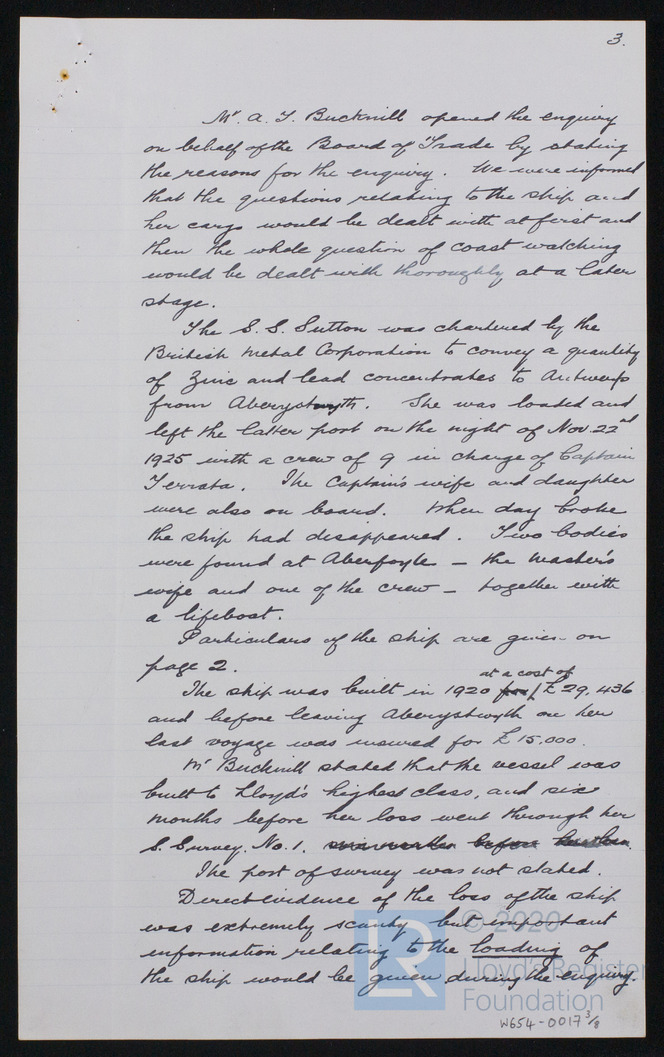 3.
Mr. A. T. Bucknill opened the enquiry
on behalf of the Board of Trade by stating
the reasons for the enquiry. We were informed
that the questions relating to the ship and
her cargo would be dealt with at first and
then the whole question of coast watching
would be dealt with thoroughly at a later
stage.
The S.S. Sutton was chartered by the
British Metal Corporation to convey a quantity
of Zinc and lead concentrates to Antwerp
from Aberystwyth. She was loaded and
left the latter port on the night of Nov. 22nd
1925 with a crew of 9 in charge of Captain
Terrata. The Captain's wife and daughter
were also on board. When day broke
the ship had disappeared. Two bodies
were found at Aberfoyle - the Master's
wife and one of the crew - together with
a lifeboat.
Particulars of the ship are given on
page 2.
at a cost of
The ship was built in 1920 for £29,436
and before leaving Aberystwyth on her
last voyage was insured for £15,000.
Mr Bucknill stated that the vessel was
built to Lloyd's highest class, and six
months before her loss went through her
S. Survey. No. 1. six months before her loss.
The port of survey was not stated.
Direct evidence of the loss of the ship
was extremely scanty but important
information relating to the loading of
the ship would be given during the enquiry.
© 2020
Lloyd's Register
Foundation
LR
W654-0017 3/8